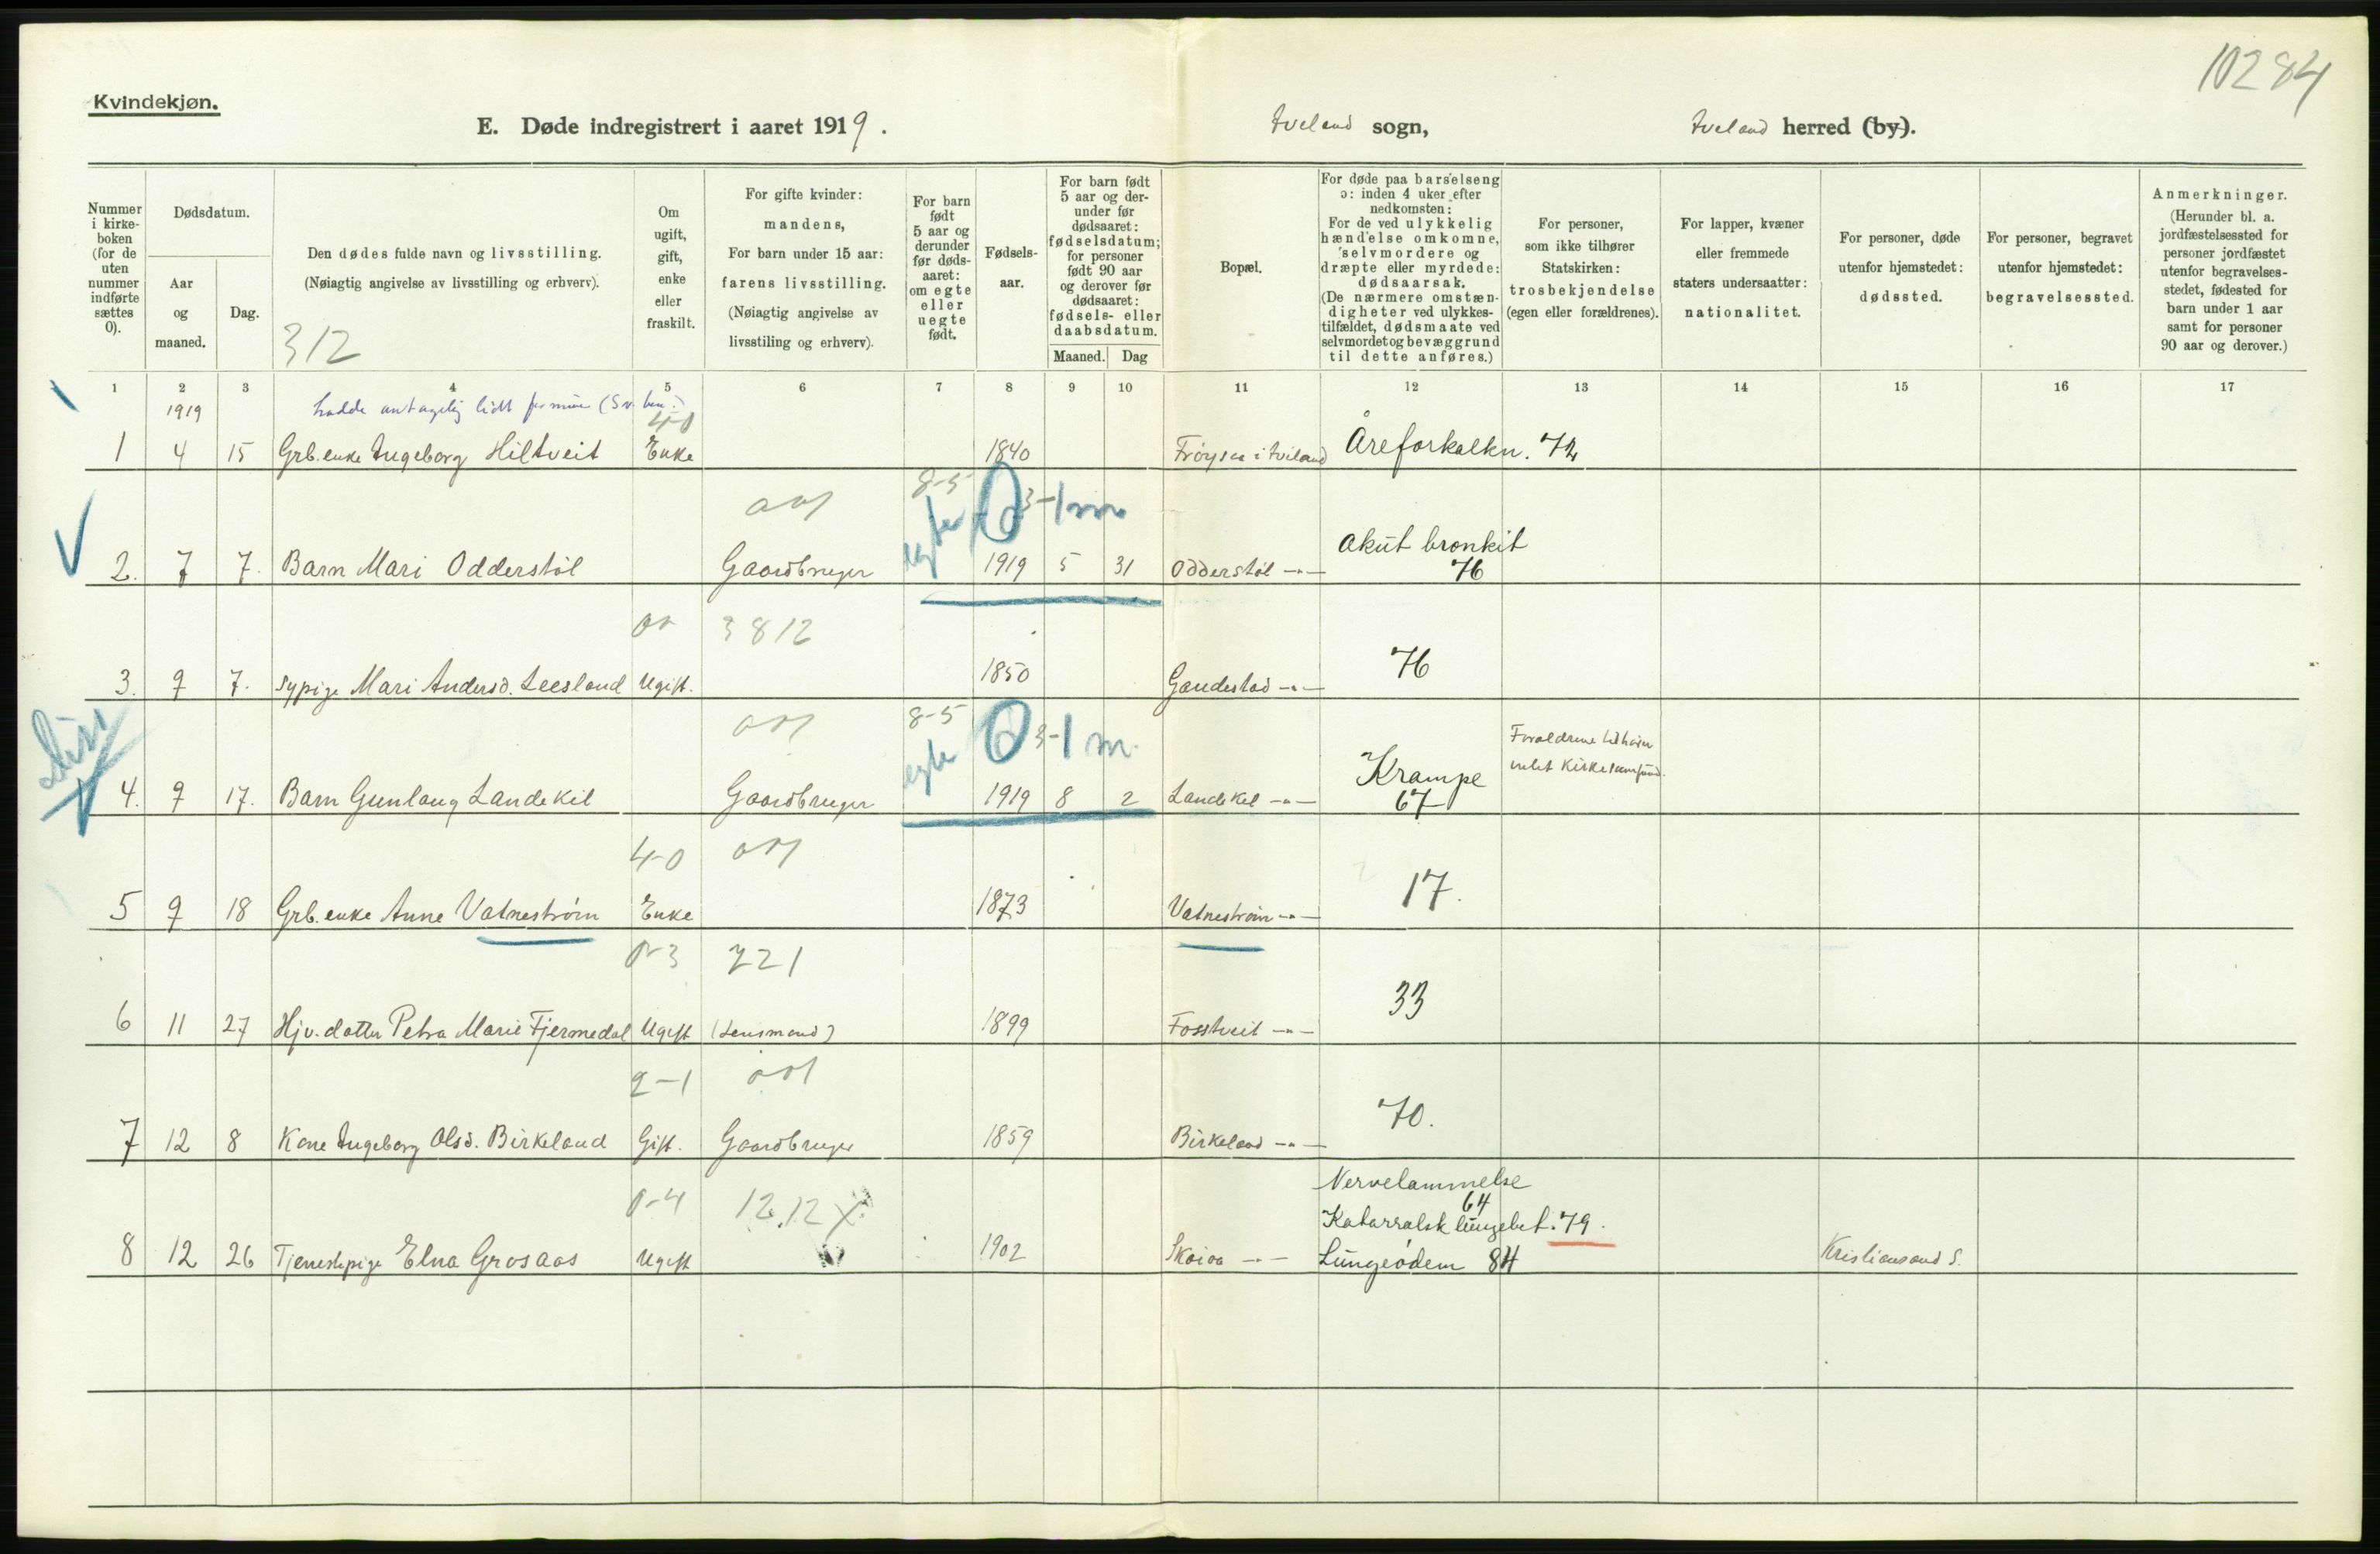 10284
Kvindekjøn.
E. Døde indregistrert i aaret 1919. Iveland sogn, Iveland herred (by).
Nummer i kirkeboken (for de uten nummer indførte sættes 0).
Dødsdatum.
Aar og maaned.
Dag.
Den dødes fulde navn og livsstilling.
(Nøiagtig angivelse av livsstilling og erhverv).
312
Om ugift, gift, enke eller fraskilt.
For gifte kvinder: mandens,
For barn under 15 aar: farens livsstilling.
(Nøiagtig angivelse av livsstiling og erhverv).
For barn født 5 aar og derunder før dødsaaret: om egte eller uegte født.
Fødselsaar.
For barn født 5 aar og derunder før dødsaaret: fødselsdatum; for personer født 90 aar og derover før dødsaaret: fødsels- eller daabsdatum.
Maaned. Dag
Bopæl.
For døde paa barselseng ɔ: inden 4 uker efter nedkomsten:
For de ved ulykkelig hændelse omkomne, selvmordere og dræpte eller myrdede: dødsaarsak.
(De nærmere omstændigheter ved ulykkestilfældet, dødsmaate ved selvmordet og bevæggrund til dette anføres.)
For personer, som ikke tilhører Statskirken: trosbekjendelse (egen eller forældrenes).
For lapper, kvæner eller fremmede staters undersaatter: nationalitet.
For personer, døde utenfor hjemstedet: dødssted.
For personer, begravet utenfor hjemstedet: begravelsessted.
Anmerkninger.
(Herunder bl. a. jordfæstelsessted for personer jordfæstet utenfor begravelsesstedet, fødested for barn under 1 aar samt for personer 90 aar og derover.)
1 2 3 4 5 6 7 8 9 10 11 12 13 14 15 16 17
1919 hadde antagelig lidt 4-0
1 4 15 Grb. enke Ingeborg Hiltveit Enke 1840 Frøysaa i Iveland Åreforkalkn. 72
001 8-5 egte 0 3-1 m
2. 7 7. Barn Mari Odderstøl Gaardbruger 1919 5 31 Odderstøl -"- Akut bronkit 76
00 3812
3. 9 7. Sypige Mari Andersd. Leesland Ugift. 1850 Gaudestad -"- 76
001 8-5 egte 0 3-1 m.
4. 9 17. Barn Gunlaug Landekil Gaardbruger 1919 8 2 Landekel -"- Krampe 67 Forældrene tilhører intet Kirkesamfund.
4-0 001
5 9 18 Grb. enke Anne Vatnestrøm Enke 1873 Vatnestrøm -"- 17.
0-3 221
6 11 27 Hjv. datter Petra Marie Fjermedal Ugift (Lensmand) 1899 Fosstveit -"- 33
2-1 001
7 12 8 Kone Ingeborg Olsd. Birkeland Gift. Gaardbruger 1859 Birkeland -"- 70.
0-4 12.12 X
8 12 26 Tjenestepige Elna Grosaas Ugift 1902 Skaiaa -"- Nervelammelse 64
Katarralsk lungebet. 79.
Lungeødem 84 Kristiansand S.